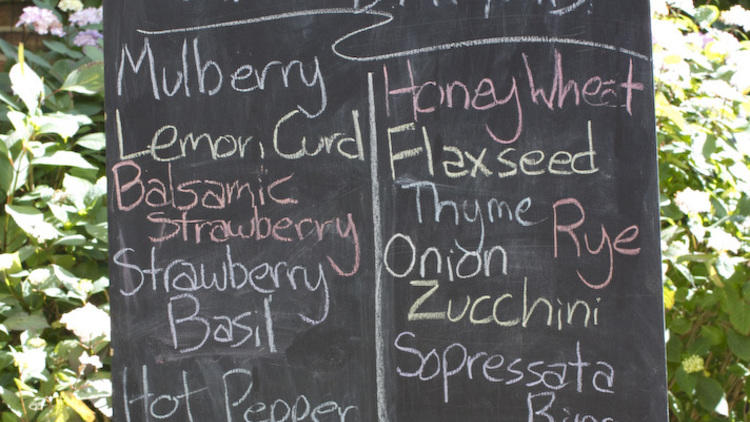 Mulberry
Lemon Curd
Balsamic
Strawberry
Strawberry
Basil
Hot Pepper
Honey Wheat
Flaxseed
Thyme Rye
Onion
Zucchini
Sopressata